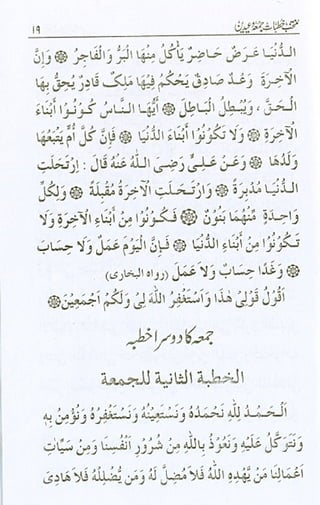 منتخب خطبات جمعہ و عیدین ۱۹
اَلدُّنْيَا عَرَضٌ حَاضِرٌ يَأْكُلُ مِنْهَا الْبَرُّ وَالْفَاجِرُ ۞ وَإِنَّ
الْآخِرَةَ وَعْدٌ صَادِقٌ يَحْكُمُ فِيْهَا مَلِكٌ قَادِرٌ يُحِقُّ بِهَا
الْحَقَّ ، وَيُبْطِلُ الْبَاطِلَ ۞ أَيُّهَا النَّاسُ كُوْنُوْا أَبْنَاءَ
الْآخِرَةِ ۞ وَلَا تَكُوْنُوْا أَبْنَاءَ الدُّنْيَا ۞ فَإِنَّ كُلَّ أُمٍّ يَتْبَعُهَا
وَلَدُهَا ۞ وَعَنْ عَلِيٍّ رَضِىَ اللّٰهُ عَنْهُ قَالَ : اِرْتَحَلَتِ
الدُّنْيَا مُدْبِرَةً ۞ وَارْتَحَلَتِ الْآخِرَةُ مُقْبِلَةً ۞ وَلِكُلِّ
وَاحِدَةٍ مِّنْهُمَا بَنُوْنَ ۞ فَكُوْنُوْا مِنْ أَبْنَاءِ الْآخِرَةِ وَلَا
تَكُوْنُوْا مِنْ أَبْنَاءِ الدُّنْيَا ۞ فَإِنَّ الْيَوْمَ عَمَلٌ وَلَا حِسَابَ
۞ وَغَدًا حِسَابٌ وَلَا عَمَلَ (رواه البخارى) ۞
اَقُوْلُ قَوْلِىْ هٰذَا وَاسْتَغْفِرُ اللّٰهَ لِىْ وَلَكُمْ اَجْمَعِيْنَ ۞
جمعہ کا دوسرا خطبہ
الخطبة الثانية للجمعة
اَلْحَمْدُ لِلّٰهِ نَحْمَدُهُ وَنَسْتَعِيْنُهُ وَنَسْتَغْفِرُهُ وَنُؤْمِنُ بِهِ
وَنَتَوَكَّلُ عَلَيْهِ وَنَعُوْذُ بِاللّٰهِ مِنْ شُرُوْرِ اَنْفُسِنَا وَمِنْ سَيِّاٰتِ
اَعْمَالِنَا مَنْ يَّهْدِهِ اللّٰهُ فَلَا مُضِلَّ لَهُ وَمَنْ يُّضْلِلْهُ فَلَا هَادِىَ